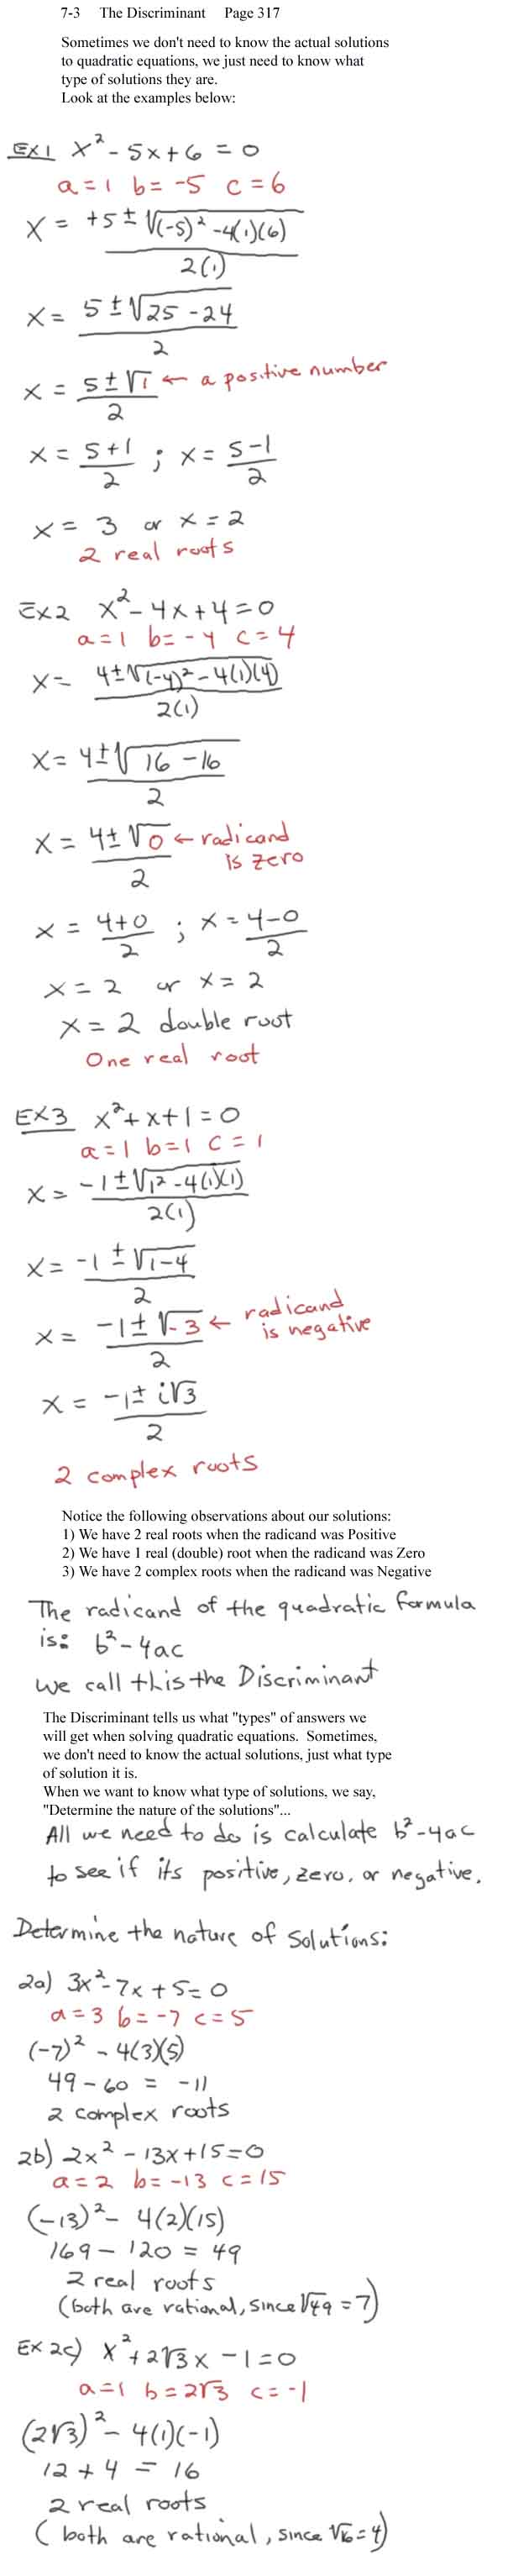 7-3 The Discriminant Page 317
Sometimes we don't need to know the actual solutions
to quadratic equations, we just need to know what
type of solutions they are.
Look at the examples below:
EX1 x² - 5x + 6 = 0
a = 1 b = -5 c = 6
x = +5 ± √(-5)² - 4(1)(6)
2(1)
x = 5 ± √25 - 24
2
x = 5 ± √1 ← a positive number
2
x = 5+1 ; x = 5-1
2 2
x = 3 or x = 2
2 real roots
Ex2 x² - 4x + 4 = 0
a = 1 b = -4 c = 4
x = 4 ± √(-4)² - 4(1)(4)
2(1)
x = 4 ± √16 - 16
2
x = 4 ± √0 ← radicand
is zero
2
x = 4+0 ; x = 4-0
2 2
x = 2 or x = 2
x = 2 double root
One real root
EX3 x² + x + 1 = 0
a = 1 b = 1 c = 1
x = -1 ± √1² - 4(1)(1)
2(1)
x = -1 ± √1-4
2
x = -1 ± √-3 ← radicand
is negative
2
x = -1 ± i√3
2
2 complex roots
Notice the following observations about our solutions:
1) We have 2 real roots when the radicand was Positive
2) We have 1 real (double) root when the radicand was Zero
3) We have 2 complex roots when the radicand was Negative
The radicand of the quadratic formula
is: b² - 4ac
we call this the Discriminant
The Discriminant tells us what "types" of answers we
will get when solving quadratic equations. Sometimes,
we don't need to know the actual solutions, just what type
of solution it is.
When we want to know what type of solutions, we say,
"Determine the nature of the solutions"...
All we need to do is calculate b² - 4ac
to see if its positive, zero, or negative.
Determine the nature of solutions:
2a) 3x² - 7x + 5 = 0
a = 3 b = -7 c = 5
(-7)² - 4(3)(5)
49 - 60 = -11
2 complex roots
2b) 2x² - 13x + 15 = 0
a = 2 b = -13 c = 15
(-13)² - 4(2)(15)
169 - 120 = 49
2 real roots
(both are rational, since √49 = 7)
Ex 2c) x² + 2√3x - 1 = 0
a = 1 b = 2√3 c = -1
(2√3)² - 4(1)(-1)
12 + 4 = 16
2 real roots
(both are rational, since √16 = 4)